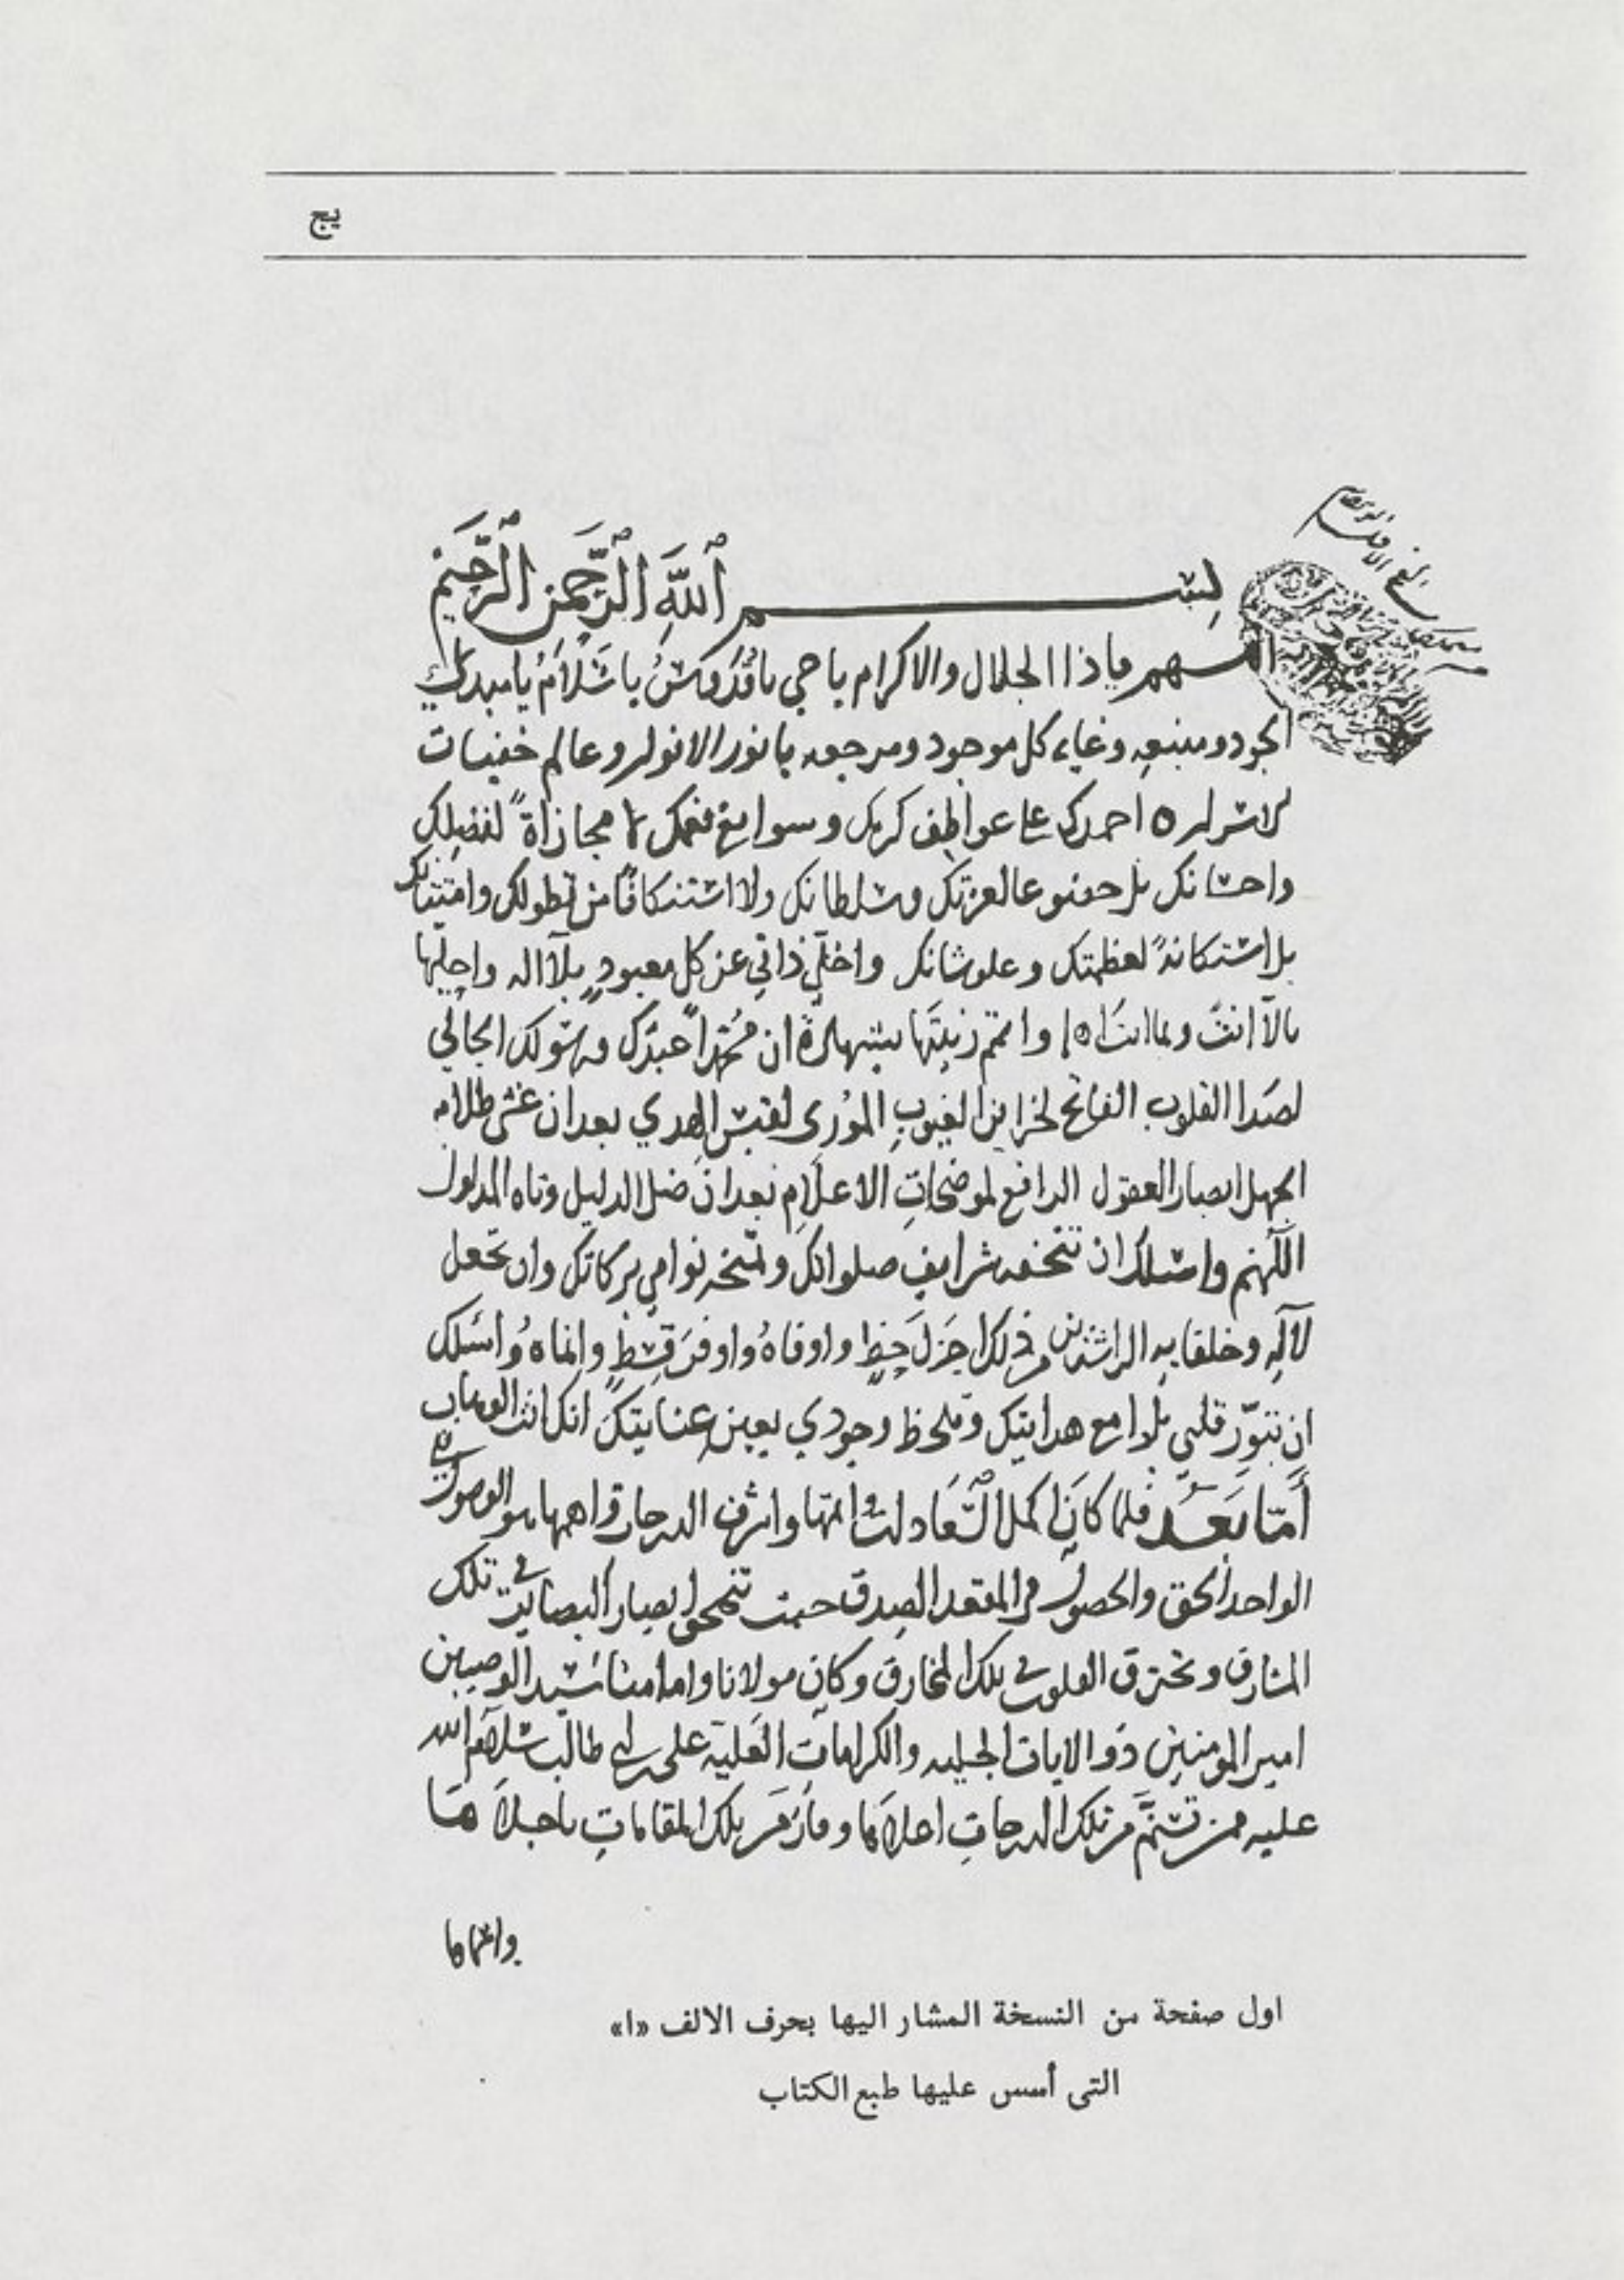 يج
بسم الله الرحمن الرحيم
اللهم يا ذا الجلال والاكرام يا حي يا قدوس يا سلام يا مبدئ كل
الجود ومنبعه وغاية كل موجود ومرجعه يا نور الانوار وعالم خفيات
الاسرار احمدك على عواطف كرمك وسوابغ نعمك لا مجازاة لفضلك
واحسانك بل خضوعا لعزتك وسلطانك ولا استنكافا من تطولك وامتنانك
بل استكانة لعظمتك وعلو شانك واخلي ذاتي عن كل معبود بلا اله واحليها
بالا انت وبما انت اهل واتمم زينتها بشهادة ان محمدا عبدك ورسولك الجالي
لصدا القلوب الفاتح لخزاين الغيوب الموري لقبس الهدي بعد ان غشى ظلام
الجهل ابصار العقول الرافع لموضحات الاعلام بعد ان ضل الدليل وتاه المدلول
اللهم واسئلك ان تتحفه شرايف صلواتك وتمنحه نوامي بركاتك وان تجعل
لآله وخلفايه الراشدين من ذلك اجزل حظ واوفاه واوفر قسط وانماه واسئلك
ان تنور قلبي بلوامع هدايتك وتلحظ وجودي بعين عنايتك انك انت الوهاب
أما بعد فلما كان اكمل السعادات واتمها واشرف الدرجات واهمها هو الوصول الى
الواحد الحق والحصول في المقعد الصدق حيث تتحير ابصار البصاير في تلك
المشارق وتحترق القلوب في تلك المخارق وكان مولانا وامامنا سيد الوصيين
امير المومنين ذو الايات الجليه والكرامات العلية على بن ابي طالب سلام الله
عليه ممن تسنم من تلك الدرجات اعلاها وفاز من تلك المقامات باجلاها
واتمها
اول صفحة من النسخة المشار اليها بحرف الالف «ا»
التى أسس عليها طبع الكتاب